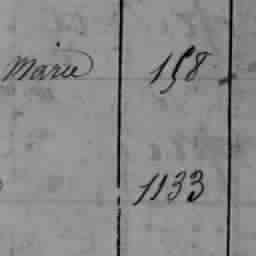 Marie 158
1133